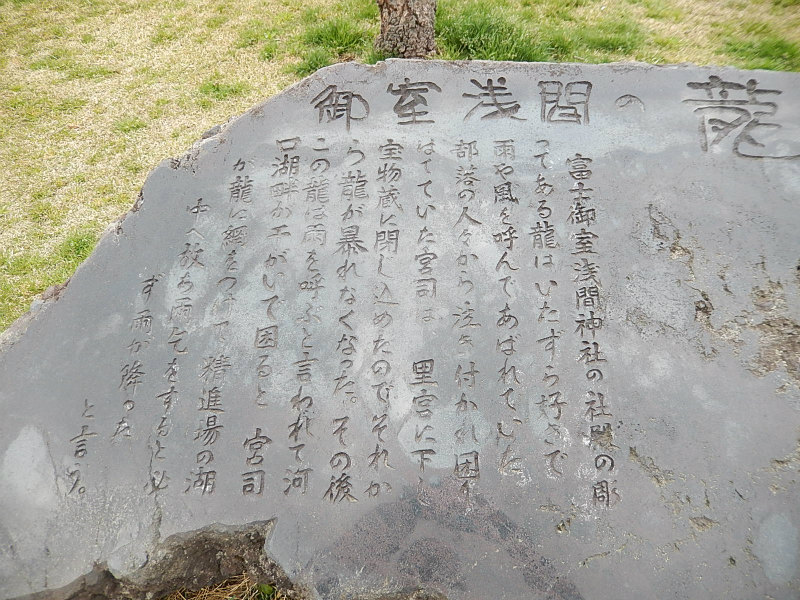 御室浅間の龍
富士御室浅間神社の社殿の彫
ってある龍はいたずら好きで
雨や風を呼んであばれていた
部落の人々から泣き付かれ困り
はてていた宮司は、里宮に下し
宝物蔵に閉じ込めたのでそれか
ら龍が暴れなくなった。その後
この龍は雨を呼ぶと言われて河
口湖畔が干がいで困ると宮司
が龍に縄をつけて精進場の湖
中へ放ち雨乞をすると必
ず雨が降った
と言う。